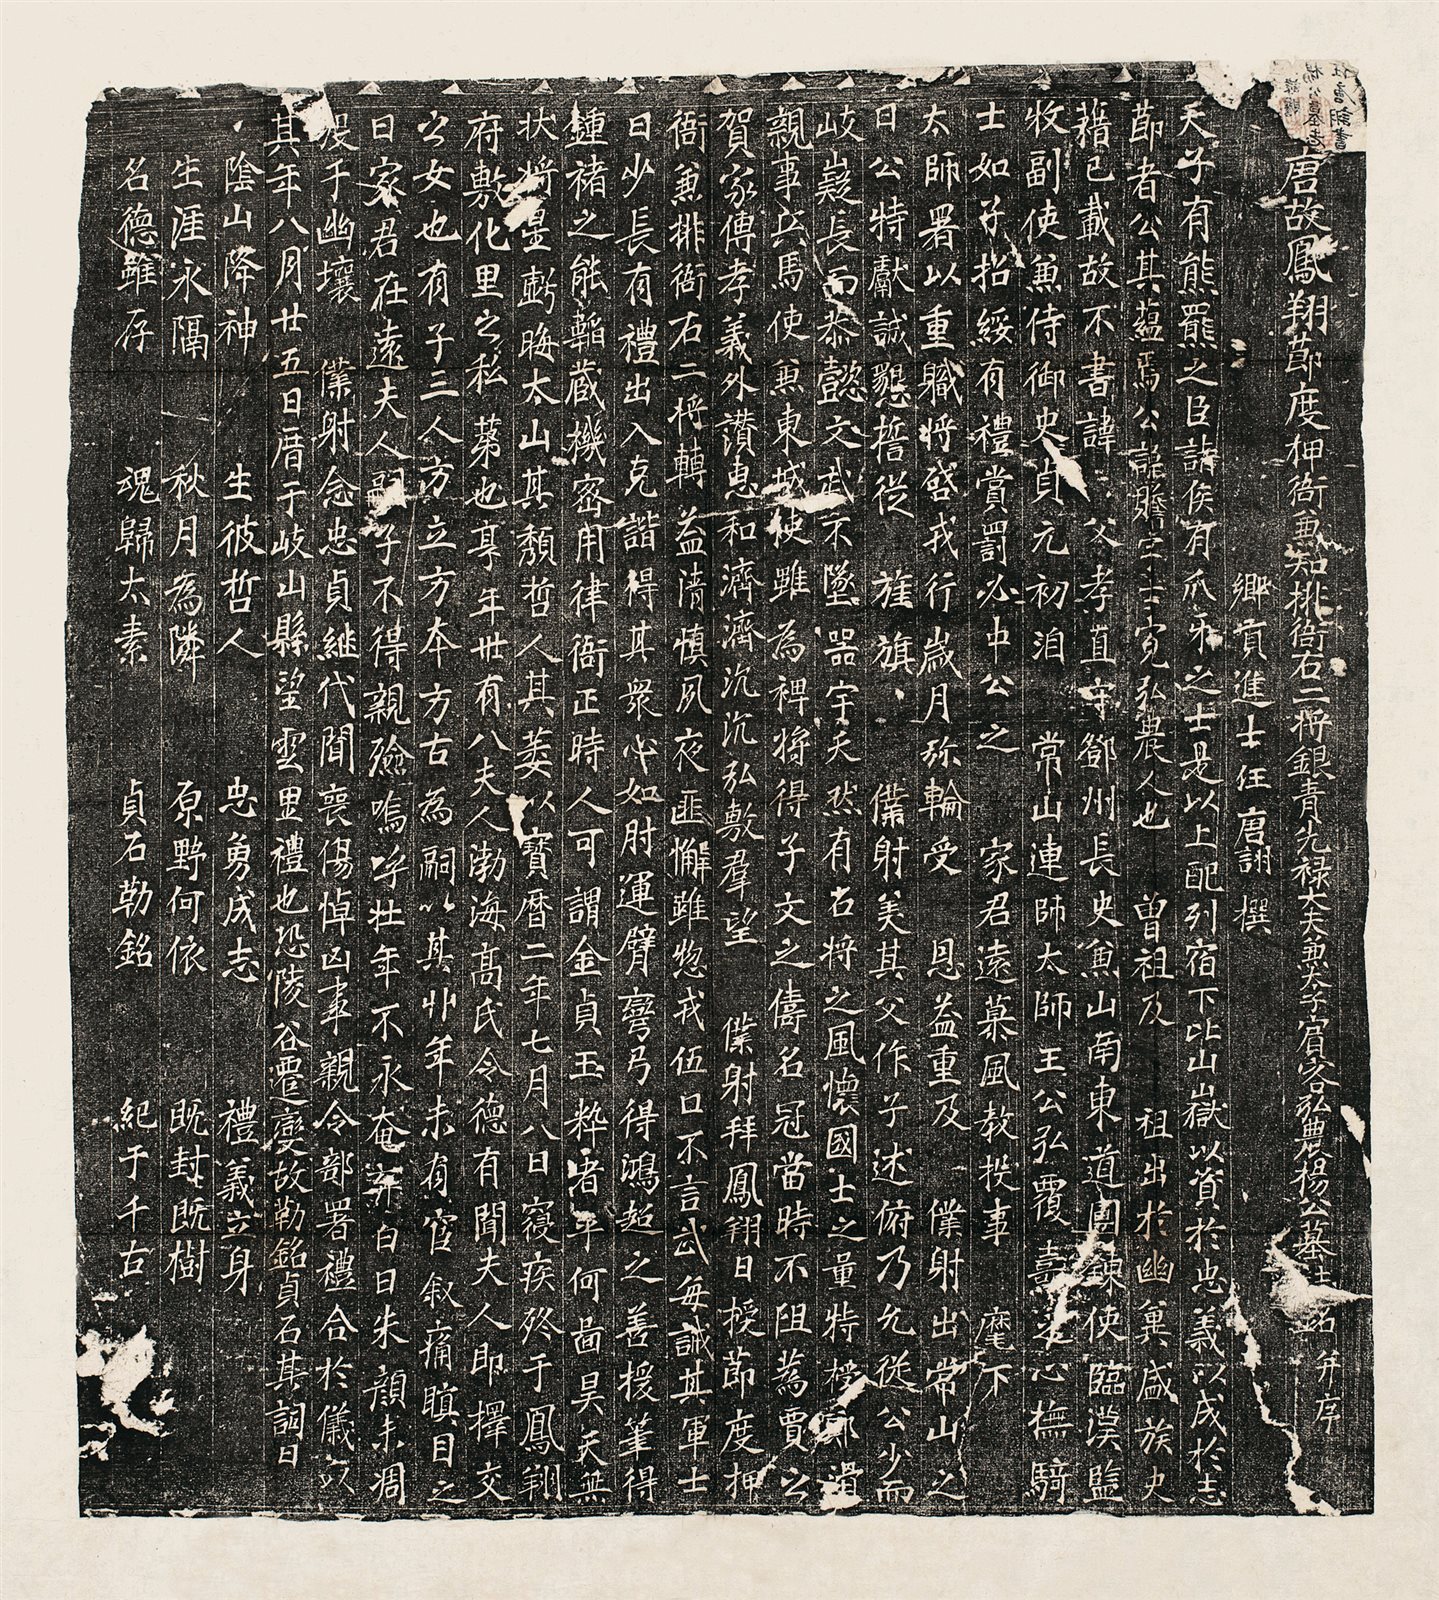 唐故鳳翔節度押衙兼知排衙右二將銀青光祿大夫兼太子賓客弘農楊公墓誌銘并序
鄉貢進士任唐詡撰
天子有熊羆之臣諸侯有爪牙之士是以上配列宿下比山嶽以資於忠義以成於志
節者公其蘊焉公諱贍字士寬弘農人也　曾祖及　祖出於幽冀盛族史
籍已載故不書諱　父孝直守鄧州長史兼山南東道團練使臨漢監
牧副使兼侍御史貞元初洎　常山連師太師王公弘覆燾之心撫騎
士如子招綏有禮賞罰必中公之　家君遠慕風教投事　麾下
太師署以重職將啓戎行歲月弥輪受　恩益重及　僕射出常山之
日公特獻誠懇誓從　旌旗　僕射美其父作子述俯乃允從公少而
岐嶷長而恭懿文武不墜器宇天然有古將之風懷國士之量特授滑
親事兵馬使兼東城使雖為裨將得子文之儔名冠當時不阻蔿賈公
賀家傳孝義外讚惠和濟濟沉沉弘敷羣望　僕射拜鳳翔日授節度押
衙兼排衙右二將轉益清慎夙夜匪懈雖惣戎伍口不言武每誡其軍士
曰少長有禮出入克諧得其衆心如肘運臂彎弓得鴻超之善援筆得
鍾褚之能韜蔵機密用律衙正時人可謂金貞玉粹者乎何啚昊天無
状將星虧晦太山其頽哲人其萎以寶曆二年七月八日寢疾終于鳳翔
府敷化里之私第也享年卌有八夫人渤海高氏令德有聞夫人即擇交
之女也有子三人方立方本方古為嗣以其丱年未有官叙痛瞋目之
日家君在遠夫人嗣子不得親殮嗚呼壯年不永奄弃白日朱顔未凋
歿于幽壤　僕射念忠貞継代聞喪傷悼凶事親令部署禮合於儀以
其年八月廿五日厝于岐山縣望雲里禮也恐陵谷遷變故勒銘貞石其詞曰
陰山降神　生彼哲人　忠勇成志　禮義立身
生涯永隔　秋月為隣　原野何依　既封既樹
名德雖存　魂歸太素　貞石勒銘　紀于千古